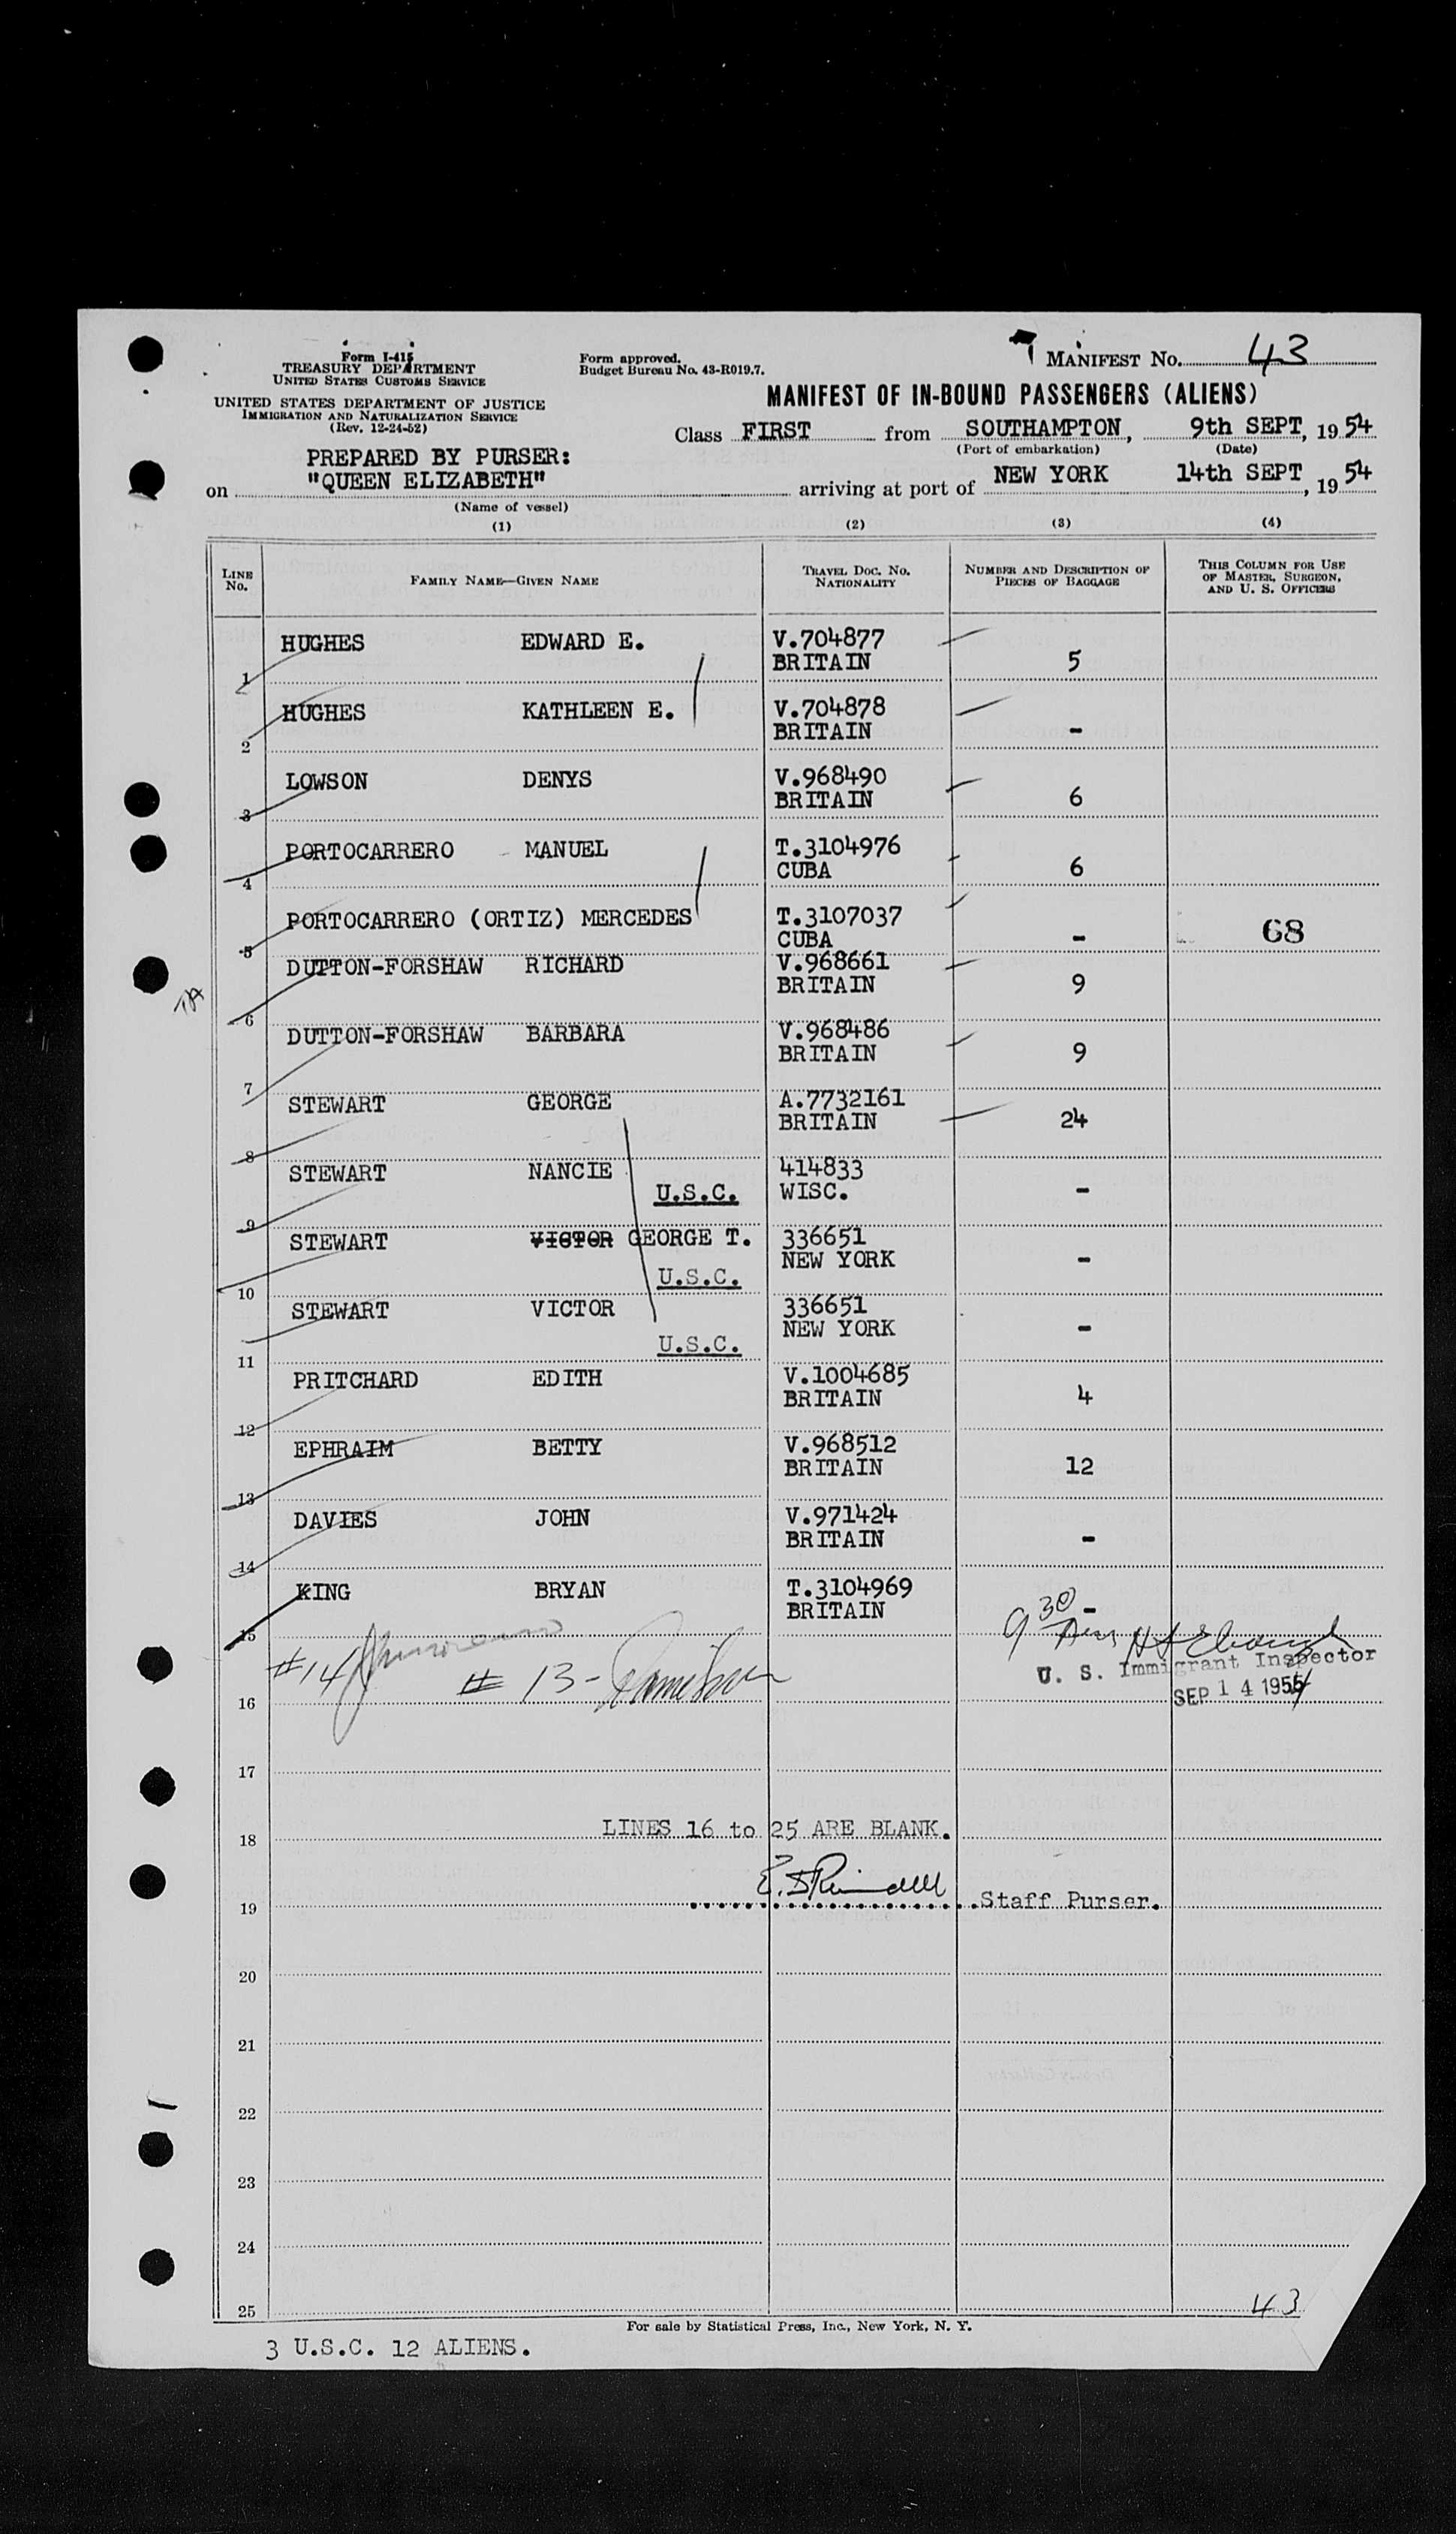 Form I-415
TREASURY DEPARTMENT
UNITED STATES CUSTOMS SERVICE
UNITED STATES DEPARTMENT OF JUSTICE
IMMIGRATION AND NATURALIZATION SERVICE
(Rev. 12-24-52)
Form approved.
Budget Bureau No. 43-R019.7.
MANIFEST No. 43
MANIFEST OF IN-BOUND PASSENGERS (ALIENS)
Class FIRST from SOUTHAMPTON, 9th SEPT, 19 54
(Port of embarkation) (Date)
PREPARED BY PURSER:
on "QUEEN ELIZABETH" arriving at port of NEW YORK 14th SEPT, 19 54
(Name of vessel)
(1) (2) (3) (4)
LINE No. FAMILY NAME—GIVEN NAME TRAVEL DOC. NO. NATIONALITY NUMBER AND DESCRIPTION OF PIECES OF BAGGAGE THIS COLUMN FOR USE OF MASTER, SURGEON, AND U. S. OFFICERS
1 HUGHES EDWARD E. V.704877 BRITAIN 5
2 HUGHES KATHLEEN E. V.704878 BRITAIN -
3 LOWSON DENYS V.968490 BRITAIN 6
4 PORTOCARRERO MANUEL T.3104976 CUBA 6
5 PORTOCARRERO (ORTIZ) MERCEDES T.3107037 CUBA - 68
TA
6 DUTTON-FORSHAW RICHARD V.968661 BRITAIN 9
7 DUTTON-FORSHAW BARBARA V.968486 BRITAIN 9
8 STEWART GEORGE A.7732161 BRITAIN 24
9 STEWART NANCIE U.S.C. 414833 WISC. -
10 STEWART VICTOR GEORGE T. U.S.C. 336651 NEW YORK -
11 STEWART VICTOR U.S.C. 336651 NEW YORK -
12 PRITCHARD EDITH V.1004685 BRITAIN 4
13 EPHRAIM BETTY V.968512 BRITAIN 12
14 DAVIES JOHN V.971424 BRITAIN -
15 KING BRYAN T.3104969 BRITAIN -
#14 # 13- 9 30
U. S. Immigrant Inspector
16 SEP 14 1954
17
18 LINES 16 to 25 ARE BLANK.
19 Staff Purser.
20
21
22
23
24
25 43
For sale by Statistical Press, Inc., New York, N. Y.
3 U.S.C. 12 ALIENS.